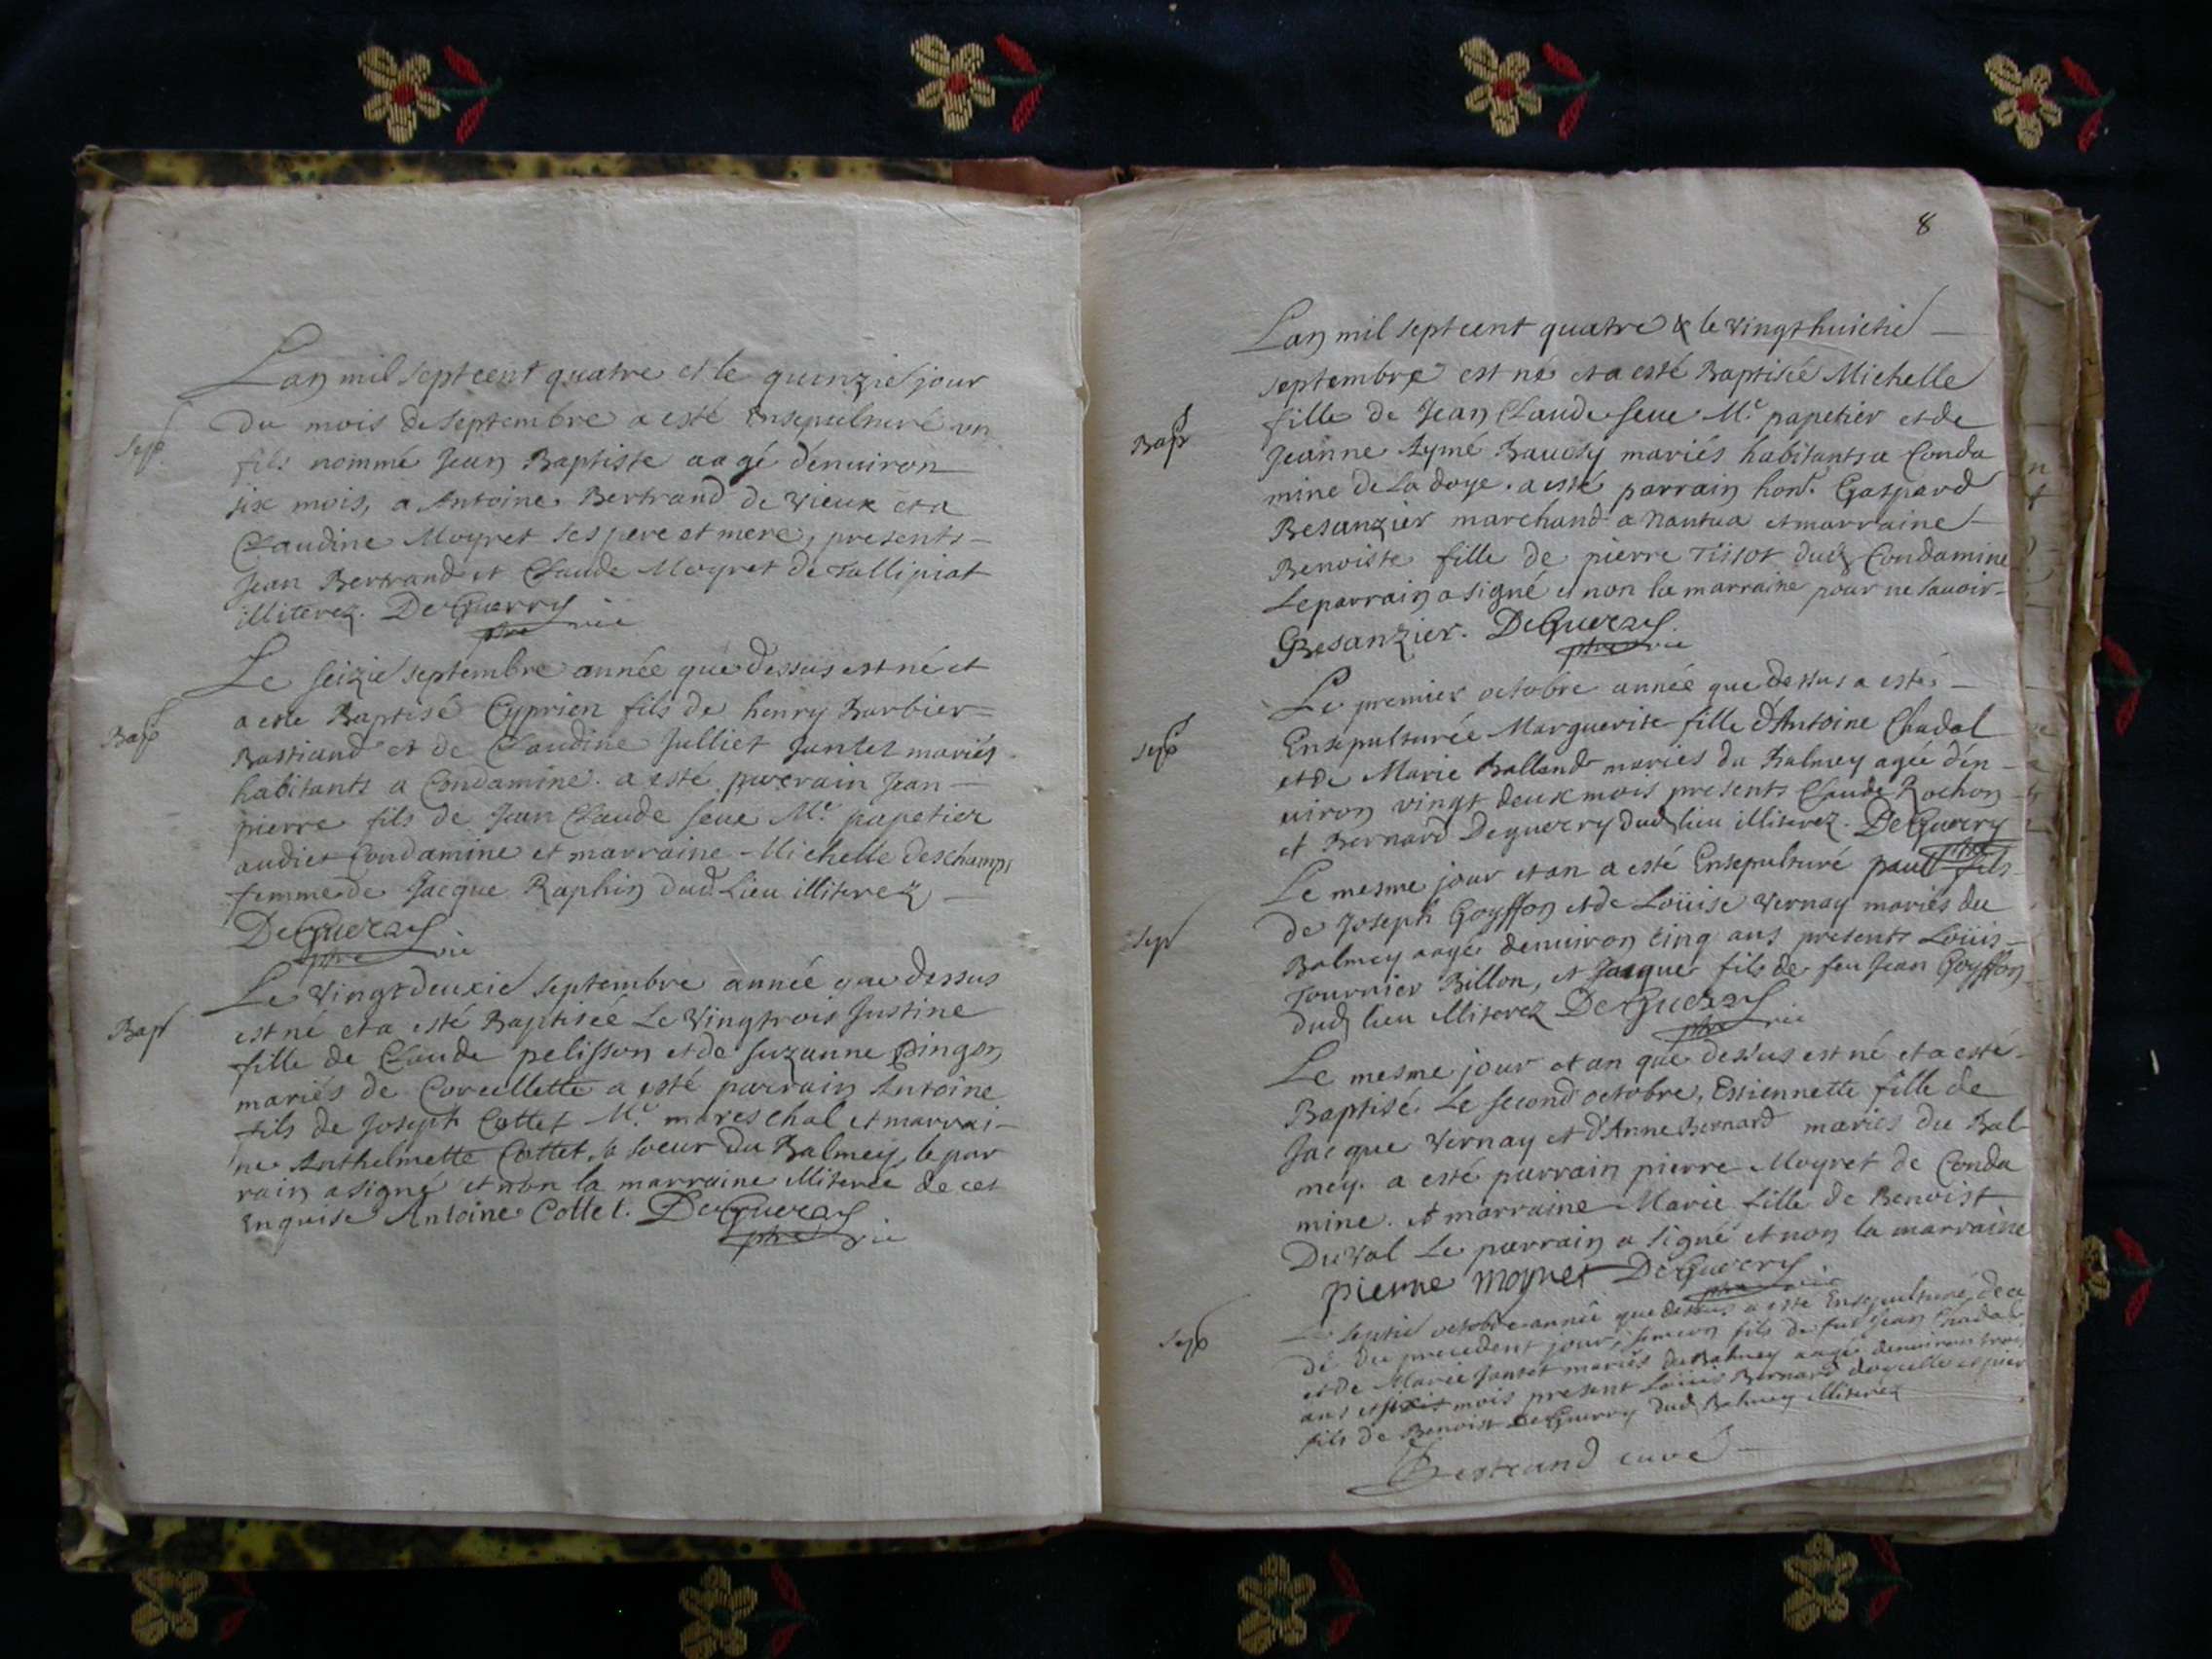 Lan mil sept cent quatre et le quinzie jour
Sep
du mois de septembre a esté Ensepulturé un
fils nommé Jean Baptiste aagé dénuiron
six mois, a Antoine Bertrand de vieux et a
Claudine Moyret ses pere et mere, presents
Jean Bertrand et Claude Moyret de Tallipiat
illiterez. DeGuerry
ptre vic
Le seizie septembre année que dessus est né et
Bap
a este Baptisé Cyprien fils de henry Barbier
Bastiand et de Claudine Julliet Jantet mariés
habitants a Condamine. a esté parrain Jean
pierre fils de Jean Claude seue Me papetier
audict Condamine et marraine Michelle deschamps
femme de Jacque Raphin dud. Lieu illiterez
DeGuerry
ptre vic
Le vingtdeuxie septembre année que dessus
Bap
est né et a esté Baptisée Le Vingtrois Justine
fille de Claude pelisson et de suzanne pingon
mariés de Corcellette a esté parrain Antoine
fils de Joseph Cottet Me mareschal et marrai-
ne Anthelmette Cottet, sa soeur du Balmey, le par
rain a signé et non la marraine illiterée de ce
Enquise Antoine Cottet. DeGuerry
ptre vic
8
Lan mil sept cent quatre & le vingt huictie
septembre est né et a esté Baptisée Michelle
Bap
fille de Jean Claude seue Me papetier et de
Jeanne Aymé Baudy mariés habitants a Conda
mine de La doye. a esté parrain hon. Gaspard
Besanzier marchand a Nantua et marraine
Benoiste fille de pierre Tissot dud Condamine
Le parrain a signé et non la marraine pour ne sauoir
GBesanzier. DeGuerry
ptre vic
Le premier octobre année que dessus a esté
Sep
Ensepulturée Marguerite fille d'Antoine Chadal
et de Marie Balland mariés du Balmey agée d'en-
uiron vingt deux mois presents Claude Rochon
et Bernard Deguerry dud lieu illiterez. DeGuerry
ptre
Le mesme jour et an a esté Ensepulturé paul fils
Sep
de Joseph Goyffon et de Loüise Vernay mariés du
Balmey aagé denuiron cinq ans presents Loüis
Tournier Billon, et Jacque fils de feu Jean Goyffon
dud lieu illiterez DeGuerry
ptre vic
Le mesme jour et an que dessus est né et a esté
Baptisé Le second octobre, Estiennette fille de
Jacque Vernay et d'Anne Bernard mariés du Bal-
mey. a esté parrain pierre Moyret de Conda
mine. et marraine Marie fille de Benoist
DuVal Le parrain a signé et non la marraine
pierre moyret DeGuerry
ptre vic
Sep
Le septie octobre année que dessus a esté Ensepulturé, dece
dé du precedent jour, simeon fils de feu Jean Chadal
et de Marie Jantet mariés du Balmey aagé denuiron trois
ans et six mois present Loüis Bernard et pier
fils de Benoist DeGuerry dud Balmey illiterez
Bertrand curé